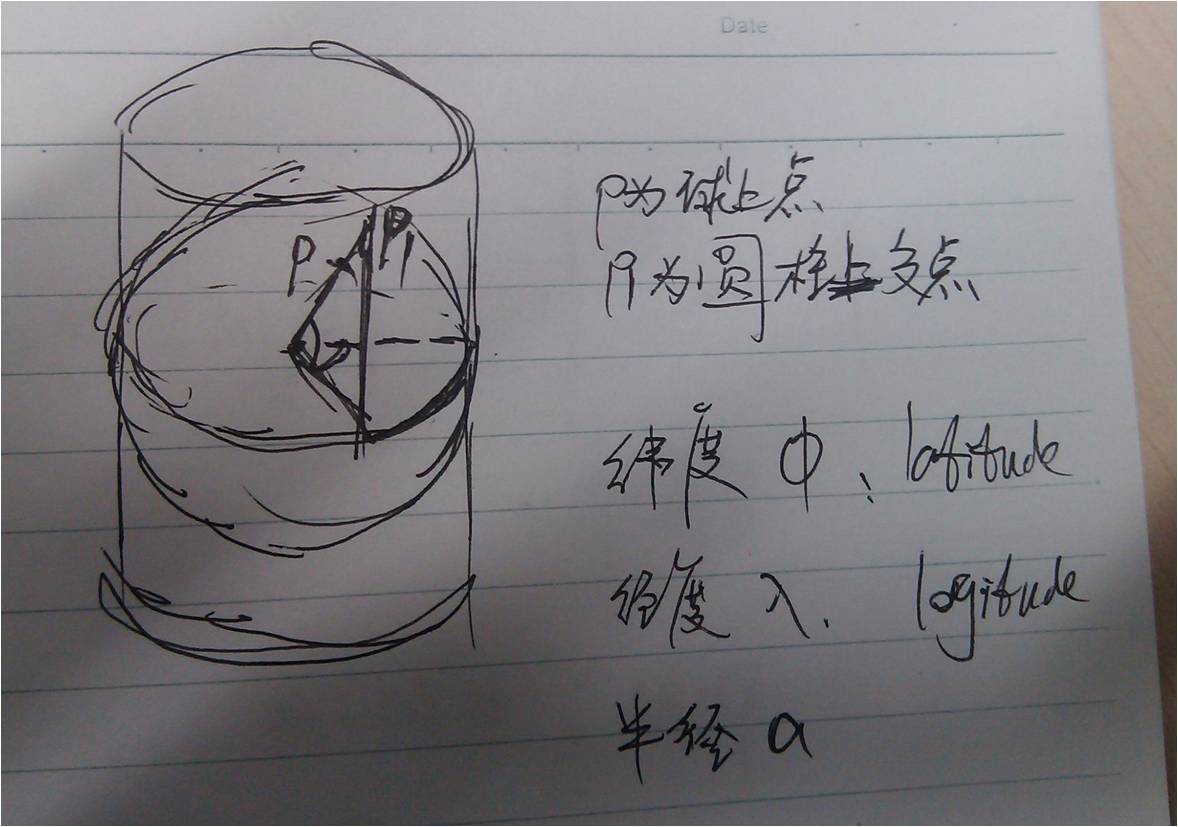 Date
P P1
P为球上点
P1为圆柱上交点
纬度 Φ、latitude
经度 λ. logitude
半径 a